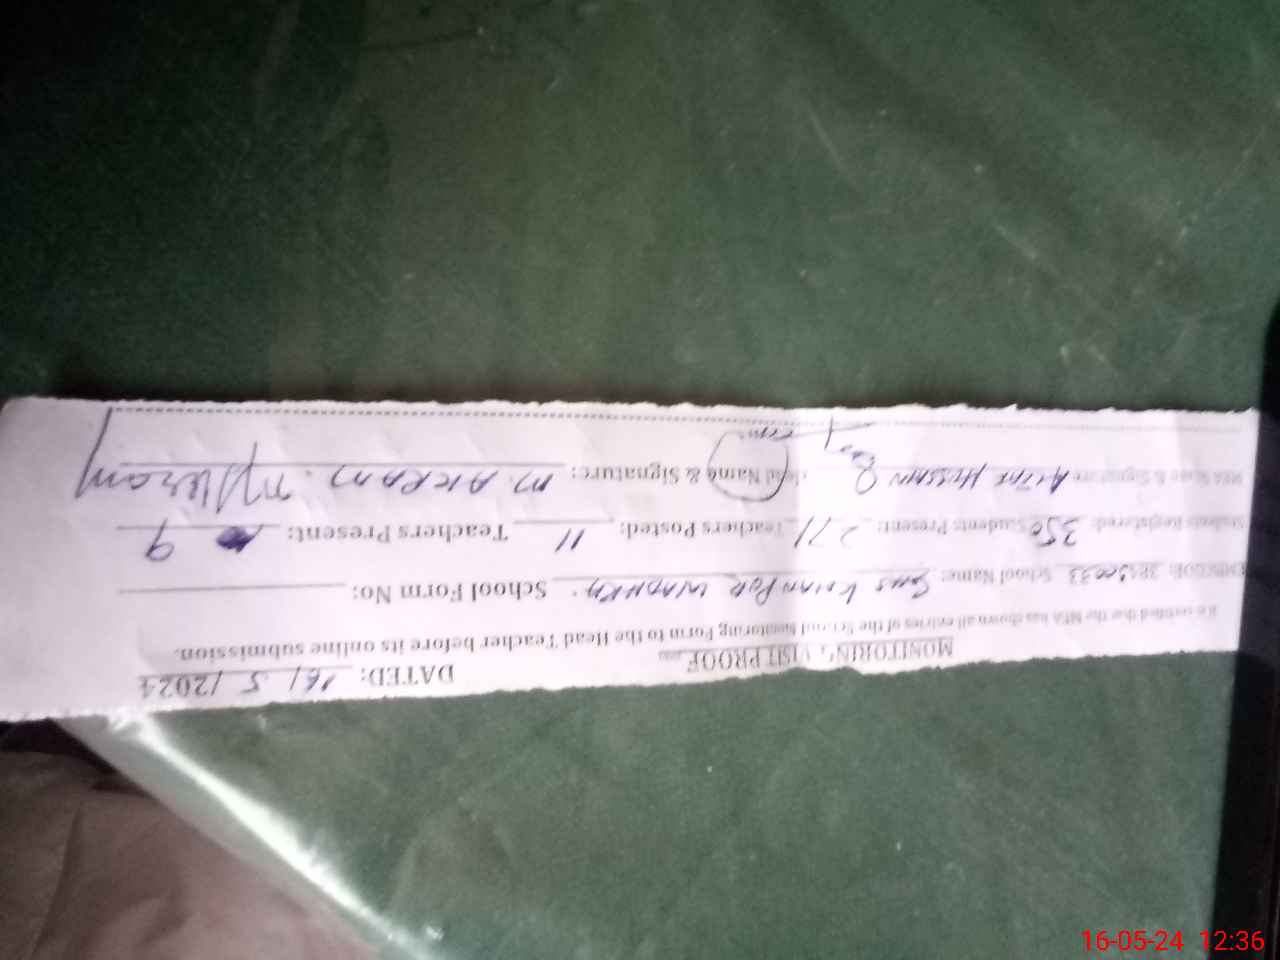 MONITORING VISIT PROOF DATED: 16/ 5 /2024
It is certified that the MEA has shown all entries of the School Monitoring Form to the Head Teacher before its online submission.
School Name: GMS KHANPUR School Form No:
Students Registered: 350 Students Present: 271 Teachers Posted: 11 Teachers Present: 9
MEA Name & Signature ALTAF HUSSAIN Head Name & Signature: M. AKRAM
16-05-24 12:36